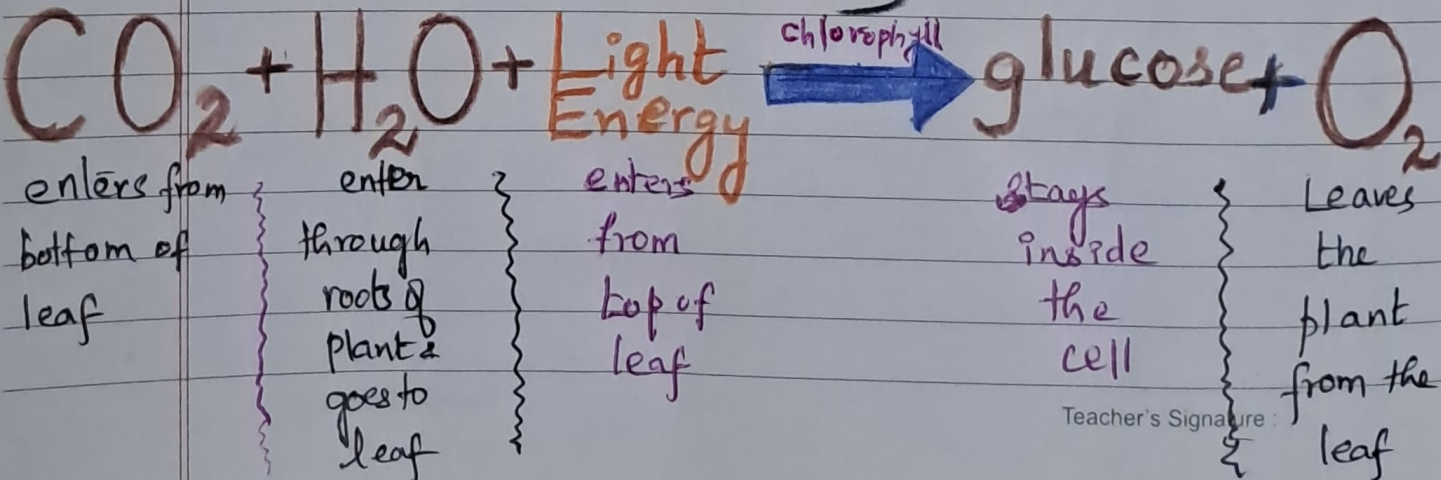 chlorophyll
CO2 + H2O + Light Energy → glucose + O2
enters from
bottom of
leaf
enter
through
roots of
plant &
goes to
leaf
enters
from
top of
leaf
Stays
inside
the
cell
Leaves
the
plant
from the
leaf
Teacher's Signature :